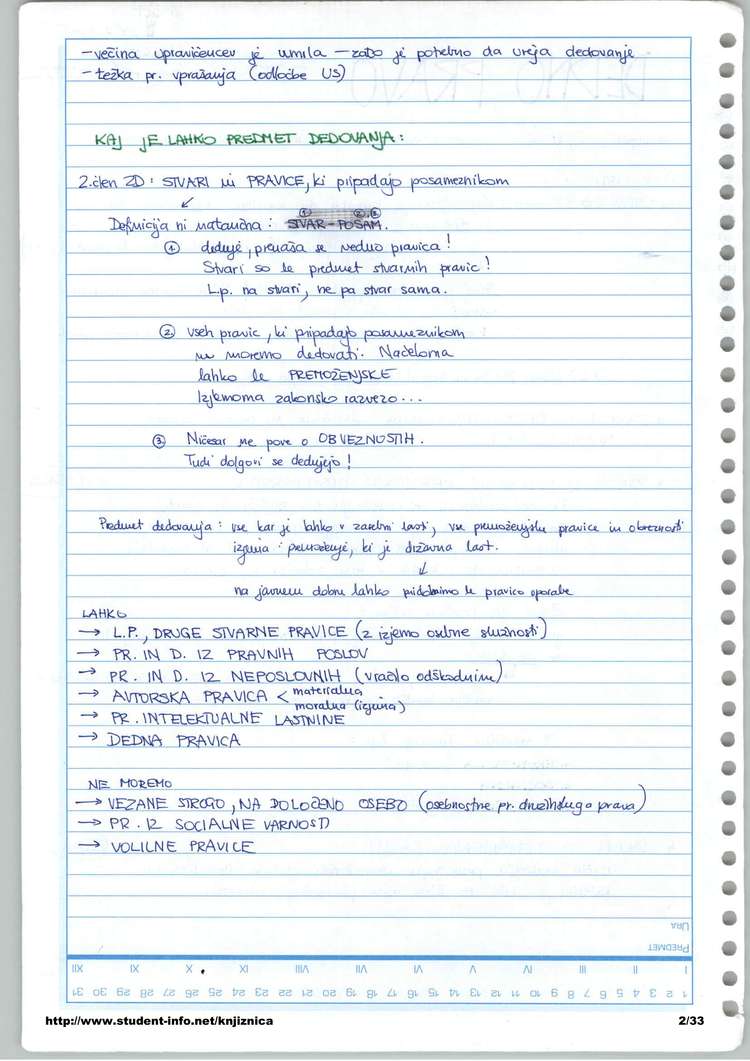 – večina upravičencev je umrla – zato je potrebno da ureja dedovanje
– težka pr. vprašanja (odločbe US)
KAJ JE LAHKO PREDMET DEDOVANJA :
2. člen ZD : STVARI in PRAVICE, ki pripadajo posameznikom
↙
Definicija ni natančna : STVAR – POSAM.
① ② ③
① deduje, prenaša se vedno pravica !
Stvari so le predmet stvarnih pravic !
L.p. na stvari, ne pa stvar sama.
② vseh pravic, ki pripadajo posameznikom
ne moremo dedovati. Načeloma
lahko le PREMOŽENJSKE
Izjemoma zakonsko razvezo...
③ Ničesar ne pove o OBVEZNOSTIH.
Tudi dolgovi se dedujejo !
Predmet dedovanja : vse kar je lahko v zasebni lasti, vse premoženjske pravice in obveznosti
izjema : premoženje, ki je državna last.
↓
na javnem dobru lahko pridobimo le pravico uporabe
LAHKO
→ L.P., DRUGE STVARNE PRAVICE (z izjemo osebne služnosti)
→ PR. IN D. IZ PRAVNIH POSLOV
→ PR. IN D. IZ NEPOSLOVNIH (vračilo odškodnine)
→ AVTORSKA PRAVICA < materialna
moralna (izjema)
→ PR. INTELEKTUALNE LASTNINE
→ DEDNA PRAVICA
NE MOREMO
→ VEZANE STROGO, NA DOLOČENO OSEBO (osebnostne pr. družinskega prava)
→ PR. IZ SOCIALNE VARNOSTI
→ VOLILNE PRAVICE
URA
PREDMET
I II III IV V VI VII VIII XI X IX XII
1 2 3 4 5 6 7 8 9 10 11 12 13 14 15 16 17 18 19 20 21 22 23 24 25 26 27 28 29 30 31
http://www.student-info.net/knjiznica 2/33